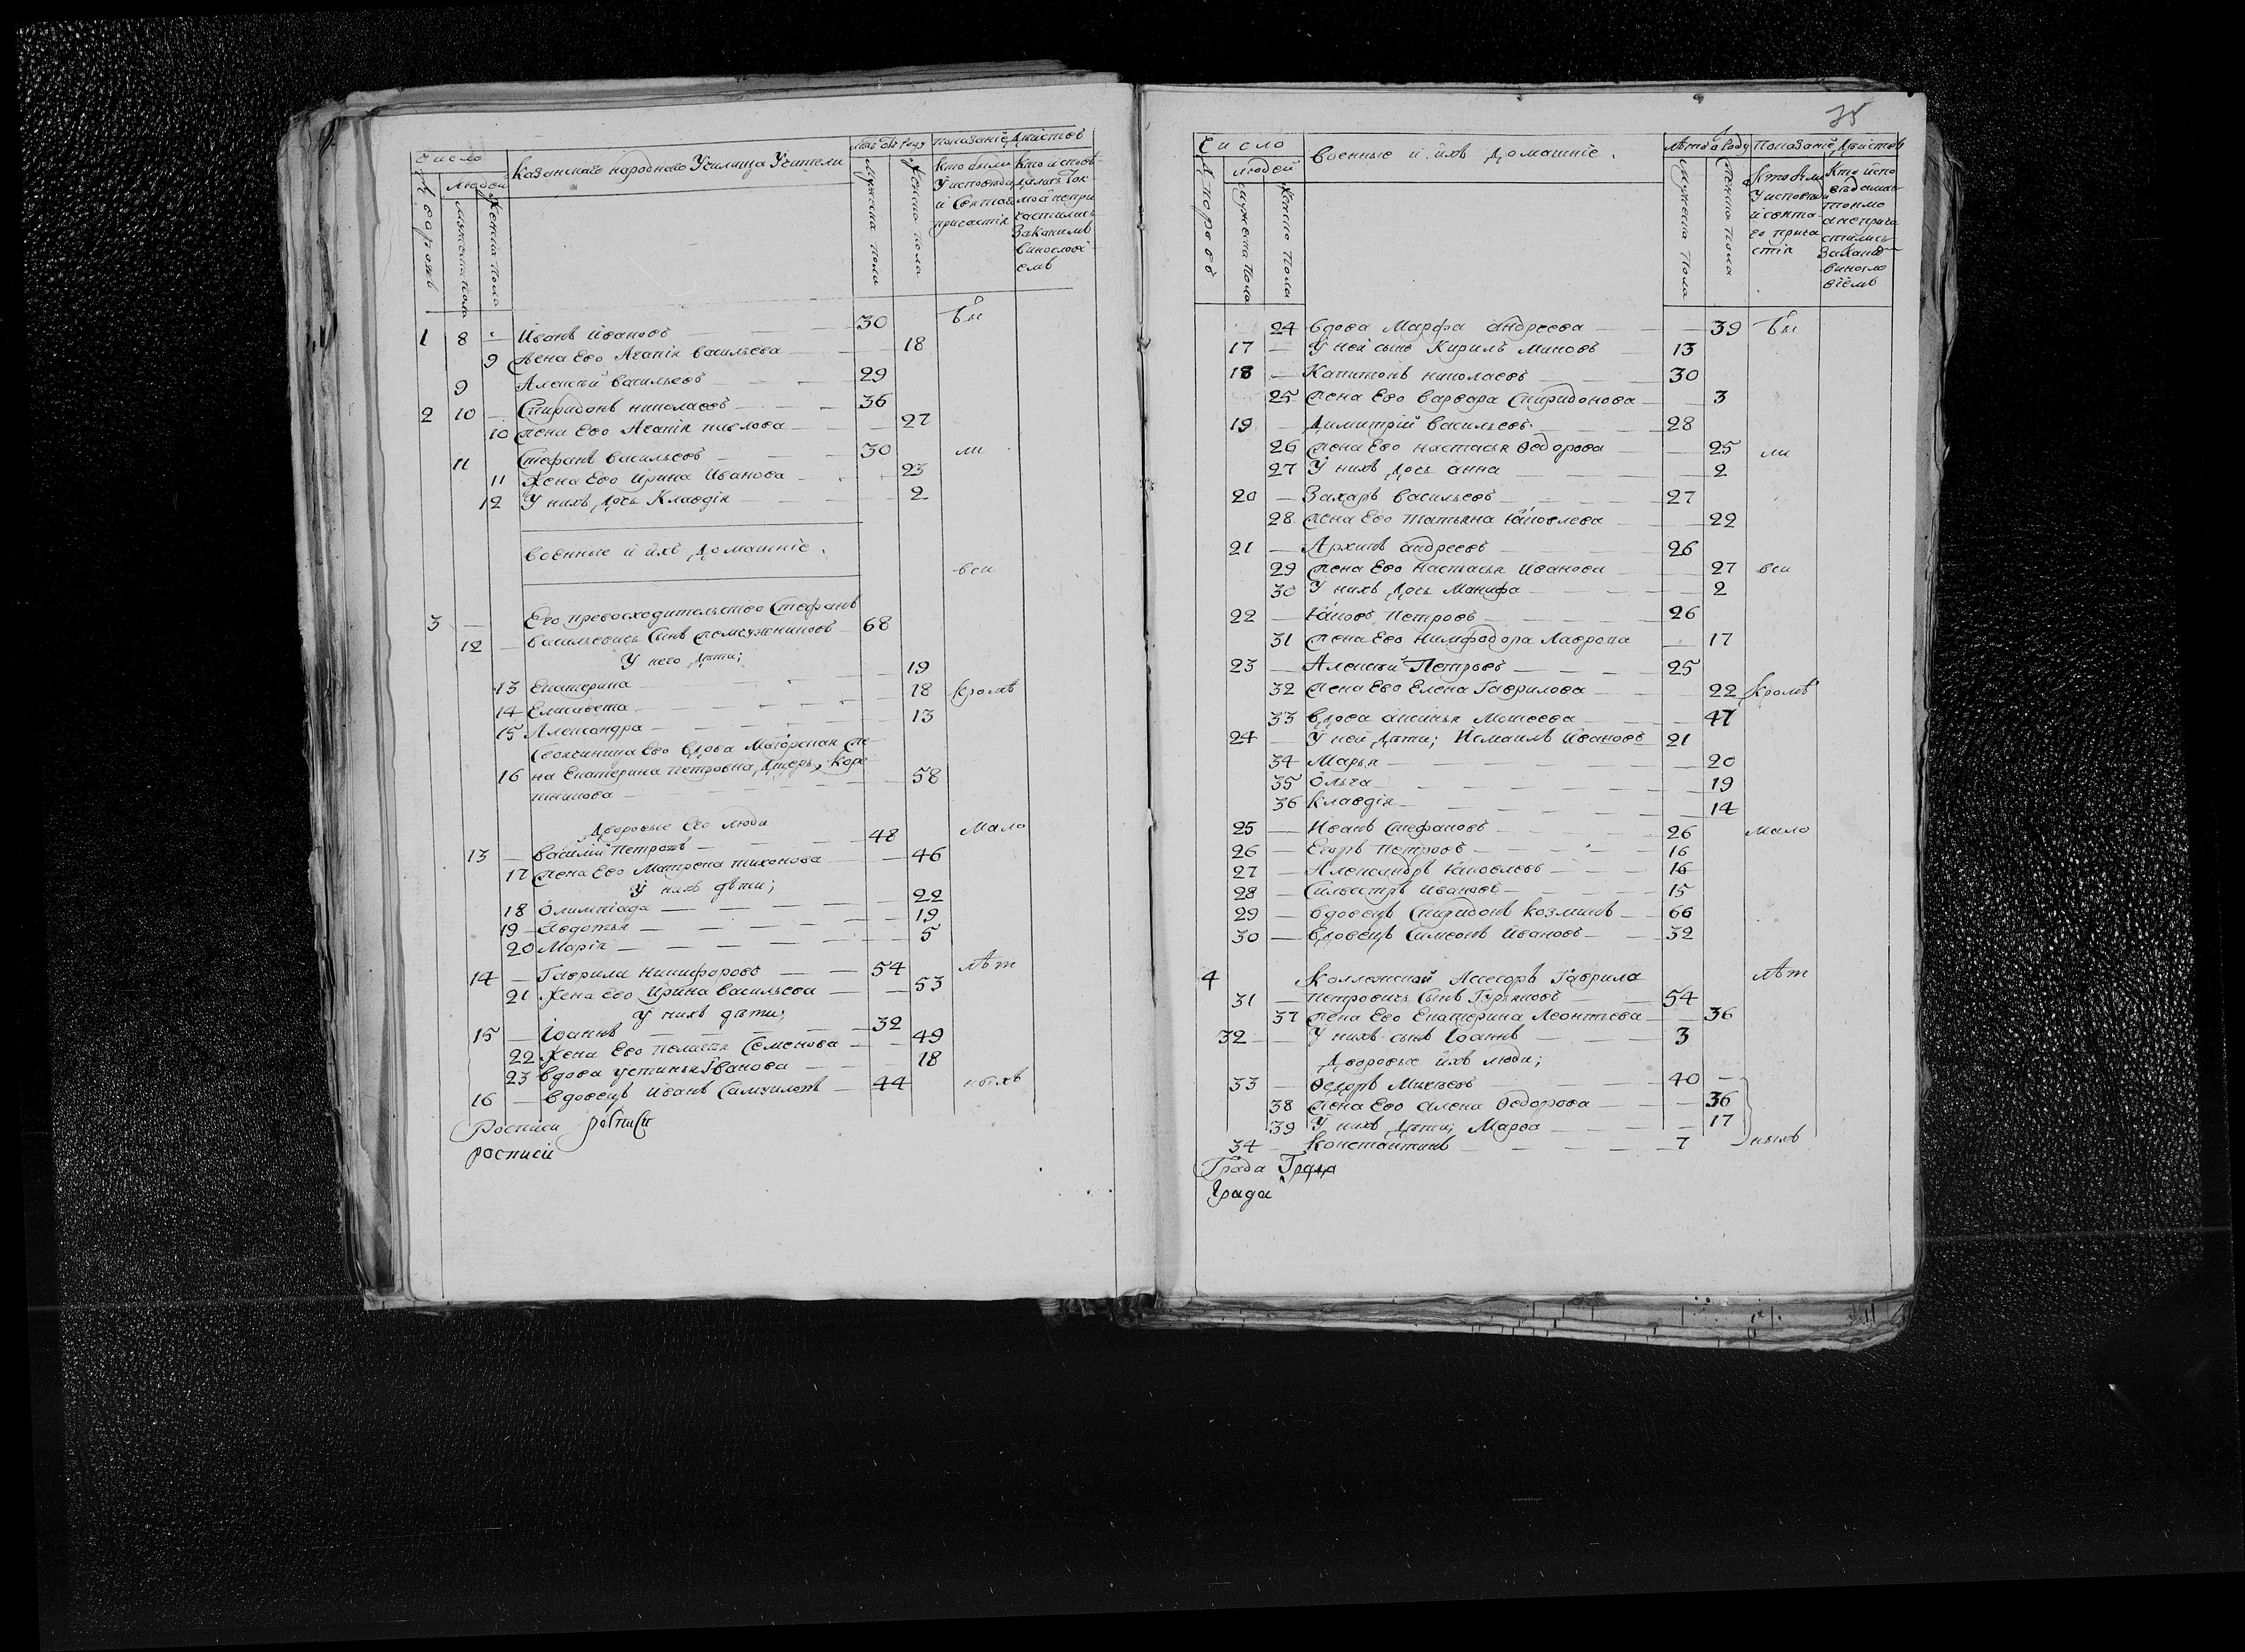 Число
Казанскаго народнаго Училища Учители
Лѣт отъ Роду
Показаніе Дѣйство
Дворовъ
Людей
Мужеска Пола
Женска Пола
Мужеска пола
Женска пола
Кто были
У исповѣди
и Святаго
причастія
Кто исповѣ-
дались ток-
мо а непри
частились
За какимъ
винослові-
емъ
1 8 - Иванъ Ивановъ 30 Бы
9 Жена Ево Агапія Васильева 18
9 Алексѣй Васильевъ 29
2 10 Спиридонъ николаевъ 36
10 Жена Ево Агапія павлова 27
11 Стефанъ Васильевъ 30 ли
11 Жена Ево Ирина Иванова 23
12 У нихъ дочь Клавдія 2
Военные и ихъ домашніе.
вси
3 Его превосходительство Стефанъ
12 Васильевичь Сынъ 68
У него дѣти;
13 Екатерина 19
14 Елисавета 18 кромѣ
15 Александра 13
Своячиница Ево Вдова Маіорская Же-
16 на Екатерина Петровна Дщерь Коре 58
Дворовые Ево люди
13 Василій Петровъ 48 Мало
17 Жена Ево Матрена тихонова 46
У нихъ дѣти;
18 Олимпіада 22
19 Авдотья 19
20 Марія 5
14 Гаврила Никифоровъ 54 лѣт
21 Жена Ево Ирина Васильева 53
У нихъ дѣти;
15 Іоаннъ 32
22 Жена Ево пелагея Семенова 49
23 Вдова устинья Иванова 18
16 Вдовецъ Иванъ Самуиловъ 44 ныхъ
Росписи росписи
росписи
38
Число
Военные и ихъ домашніе.
Лѣта Роду
Показаніе Дѣйство
Дворовъ
людей
Мужеска Пола
Женска Пола
Мужеска Пола
Женска Пола
Кто были
У исповѣди
и свята-
го прича
стія
Кто испо
вѣдались
токмо
а неприча
стились
За каки
винсло
віемъ
24 Вдова Марфа Андреева 39 Бы
17 У ней сынъ Кирилъ Миновъ 13
18 Капитонъ николаевъ 30
25 Жена Ево Варвара Спиридонова 3
19 Димитрій Васильевъ 28
26 Жена Ево Настасья Ѳедорова 25 ли
27 У нихъ дочь анна 2
20 Захаръ Васильевъ 27
28 Жена Ево Татьяна Яковлева 22
21 Архипъ андреевъ 26
29 Жена Ево Настасья Иванова 27 вси
30 У нихъ дочь Манифа 2
22 Яковъ Петровъ 26
31 Жена Ево Нимфодора Лаврова 17
23 Алексѣй Петровъ 25
32 Жена Ево Елена Гаврилова 22 кромѣ
33 Вдова Аксинья Моисеева 47
24 У ней дѣти; Исмаилъ Ивановъ 21
34 Марья 20
35 Ольга 19
36 Клавдія 14
25 Иванъ Стефановъ 26 мало
26 Егоръ Петровъ 16
27 Александръ Яковлевъ 16
28 Сильвестръ Ивановъ 15
29 Вдовецъ Спиридонъ Козминъ 66
30 Вдовецъ Симеонъ Ивановъ 32
4 Коллежской Ассесоръ Гаврила лѣт
31 Петровичь Сынъ Гурьяновъ 54
37 Жена Ево Екатерина Леонтьева 36
32 У нихъ сынъ Іоаннъ 3
Дворовые ихъ люди;
33 Ѳедоръ Михѣевъ 40
38 Жена Ево Алена Ѳедорова 36
39 У нихъ дѣти; Марѳа 17
34 Константинъ 7 ныхъ
Града Града
Града